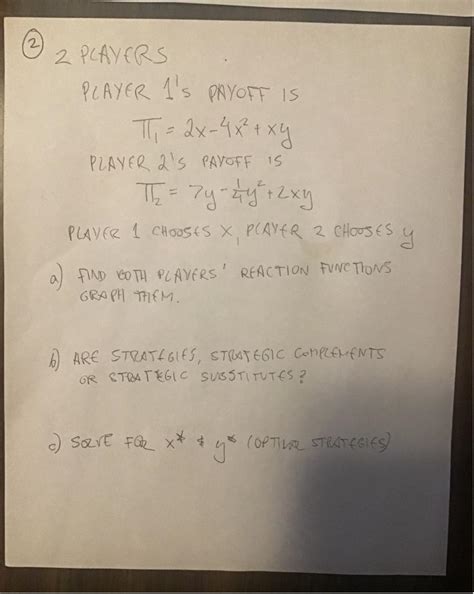 2
2 PLAYERS
PLAYER 1's PAYOFF IS
π₁ = 2x-4x²+xy
PLAYER 2's PAYOFF IS
π₂ = 7y-¼y²+2xy
PLAYER 1 CHOOSES X, PLAYER 2 CHOOSES y
a) FIND BOTH PLAYERS' REACTION FUNCTIONS
GRAPH THEM.
b) ARE STRATEGIES, STRATEGIC COMPLEMENTS
OR STRATEGIC SUBSTITUTES?
c) SOLVE FOR x* & y* (OPTIMAL STRATEGIES)